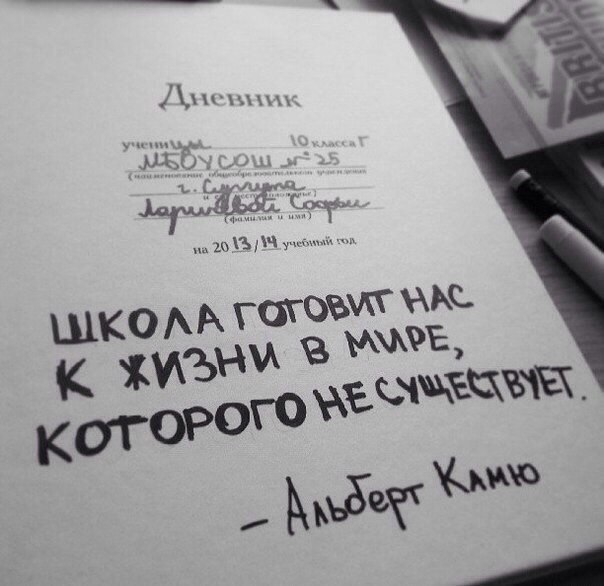 Дневник
учени цы 10 класса Г
МБОУСОШ № 25
(наименование общеобразовательного учреждения
г. Сургута
и местоположение)
Софьи
(фамилия и имя)
на 20 13 / 14 учебный год
ШКОЛА ГОТОВИТ НАС
К ЖИЗНИ В МИРЕ,
КОТОРОГО НЕ СУЩЕСТВУЕТ.
– Альберт Камю
BRITIS